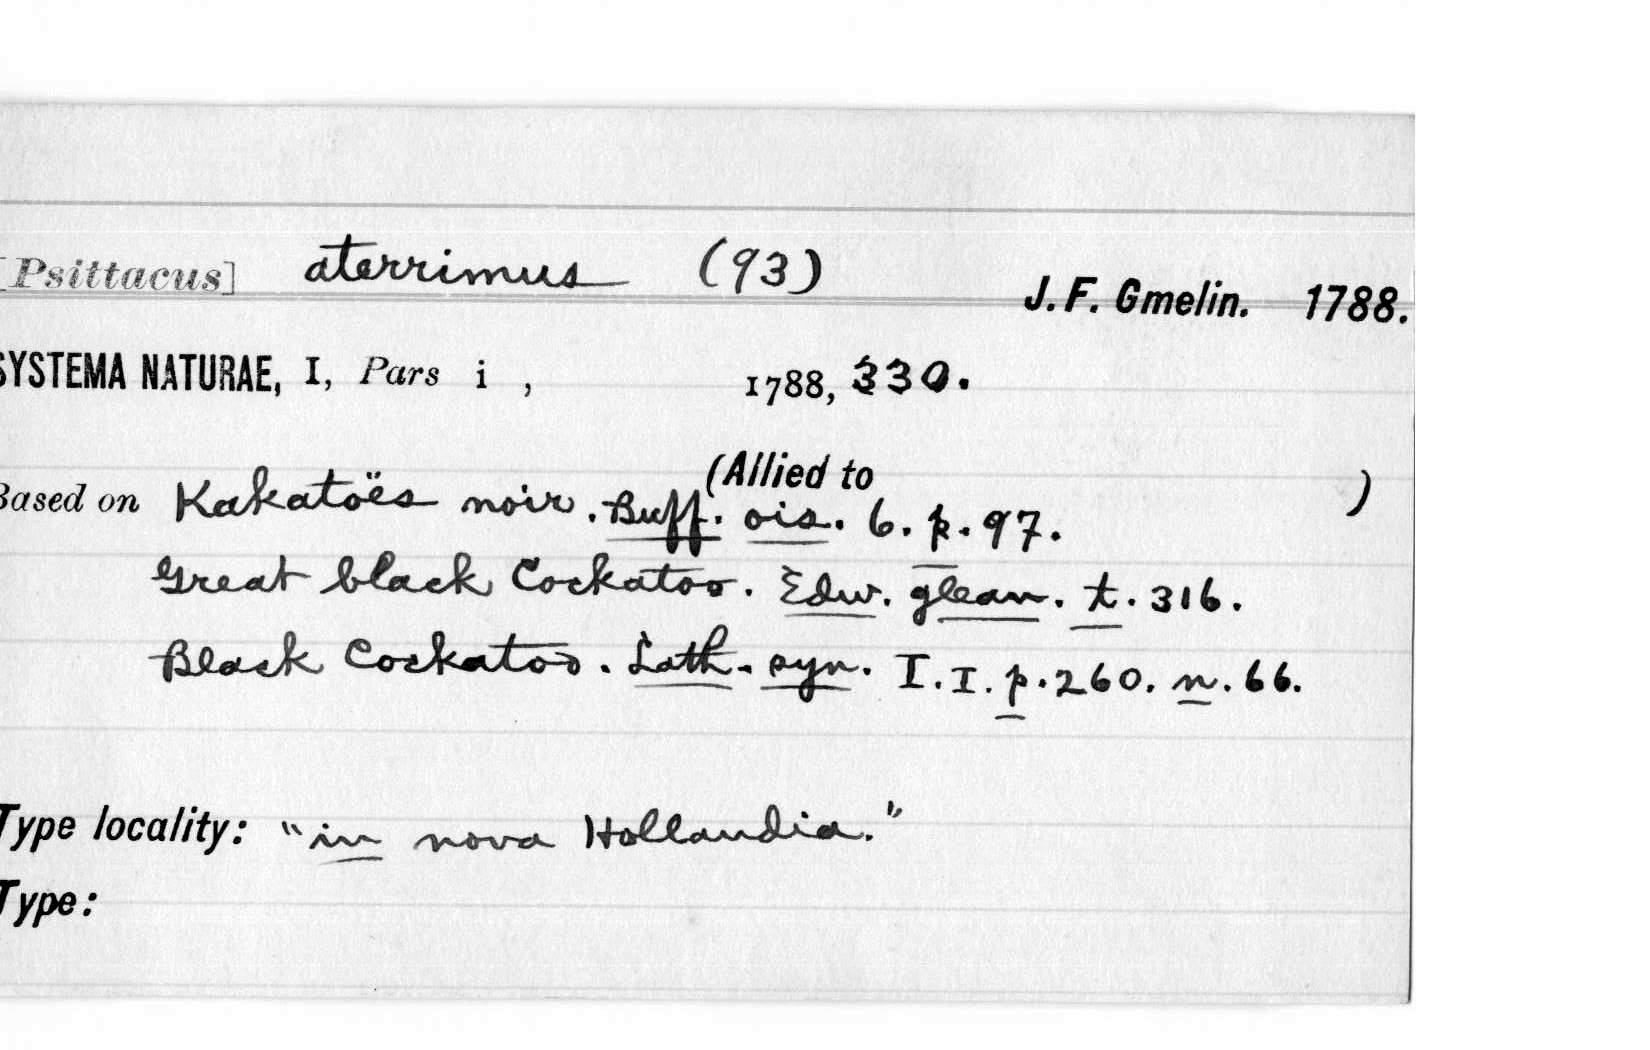 [Psittacus] aterrimus (93)
J. F. Gmelin. 1788.
SYSTEMA NATURAE, I, Pars i , 1788, 330.
(Allied to )
Based on Kakatoës noir. Buff. ois. 6. p. 97.
Great black Cockatoo. Edw. glean. t. 316.
Black Cockatoo. Lath. syn. I. I. p. 260. n. 66.
Type locality: "in nova Hollandia."
Type: